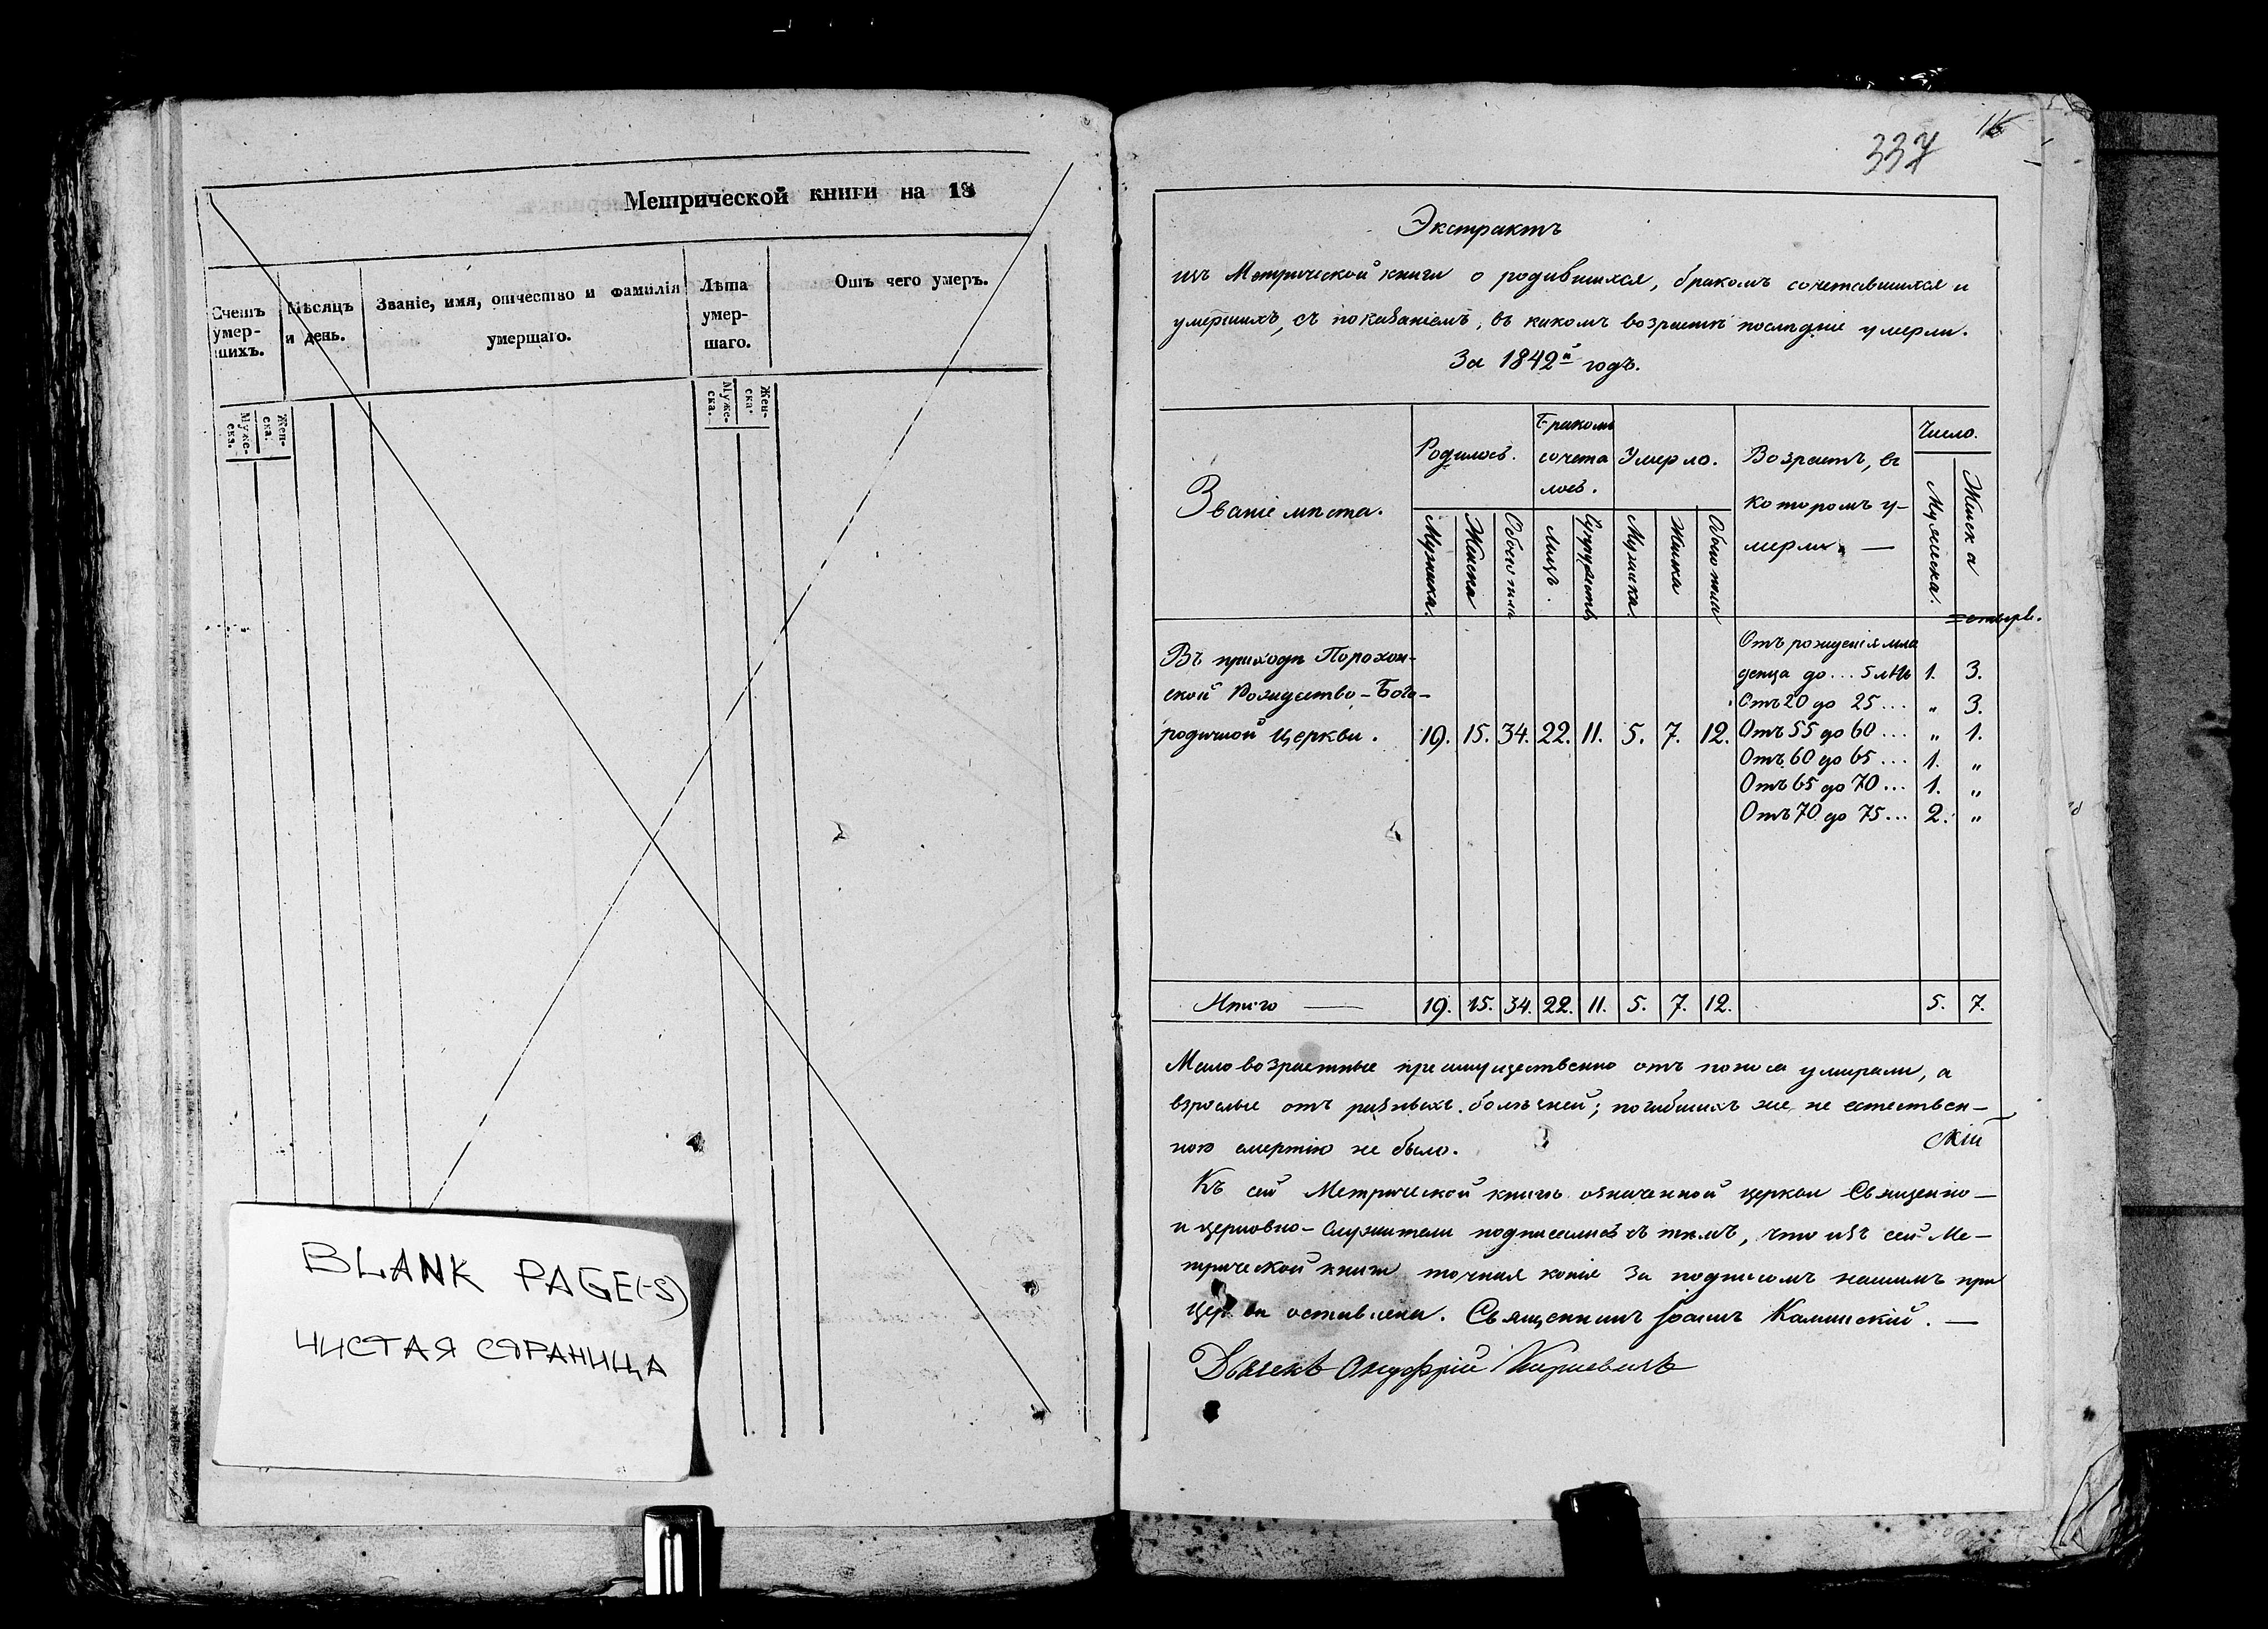 Метрической книги на 18
Счетъ умер- шихъ.
Мѣсяцъ и день.
Званіе, имя, отчество и фамилія умершаго.
Лѣта умер- шаго.
Отъ чего умеръ.
Муже- ска.
Жен- ска.
Муже- ска.
Жен- ска.
BLANK PAGE(-S)
ЧИСТАЯ СТРАНИЦА
337
Экстрактъ
изъ Метрической книги о родившихся, бракомъ сочетавшихся и
умершихъ, съ показаніемъ, въ какомъ возрастѣ послѣдніе умерли.
За 1842й годъ.
Званіе мѣста.
Родилось.
Бракомъ сочета лось.
Умерло.
Возрастъ, въ которомъ у- мерли. —
Число.
Мужеска.
Женска
Обоего пола
Лицъ.
Супружествъ
Мужеска
Женска
Обоего пола
Мужеска.
Женска
Въ приходѣ Порохон-
ской Рождество-Бого-
родичной Церкви. 19. 15. 34. 22. 11. 5. 7. 12.
Отъ рожденія мла
денца до ... 5 лѣтъ 1. 3.
Отъ 20 до 25 ... „ 3.
Отъ 55 до 60 ... „ 1.
Отъ 60 до 65 ... 1. „
Отъ 65 до 70 ... 1. „
Отъ 70 до 75 ... 2. „
Итого — 19. 15. 34. 22. 11. 5. 7. 12. 5. 7.
Маловозрастные преимущественно отъ поноса умирали, а
взрослые отъ разныхъ болѣзней; погибшихъ же не естествен-
ною смертію не было.
скій
Къ сей Метрической книгѣ означенной церкви Священно-
и церковно-служители подписались съ тѣмъ, что изъ сей Ме-
трической книги точная копія за подписомъ нашимъ при
оставлена. Священникъ Іоаннъ Каминскій. —
Дьячекъ Онуфрій